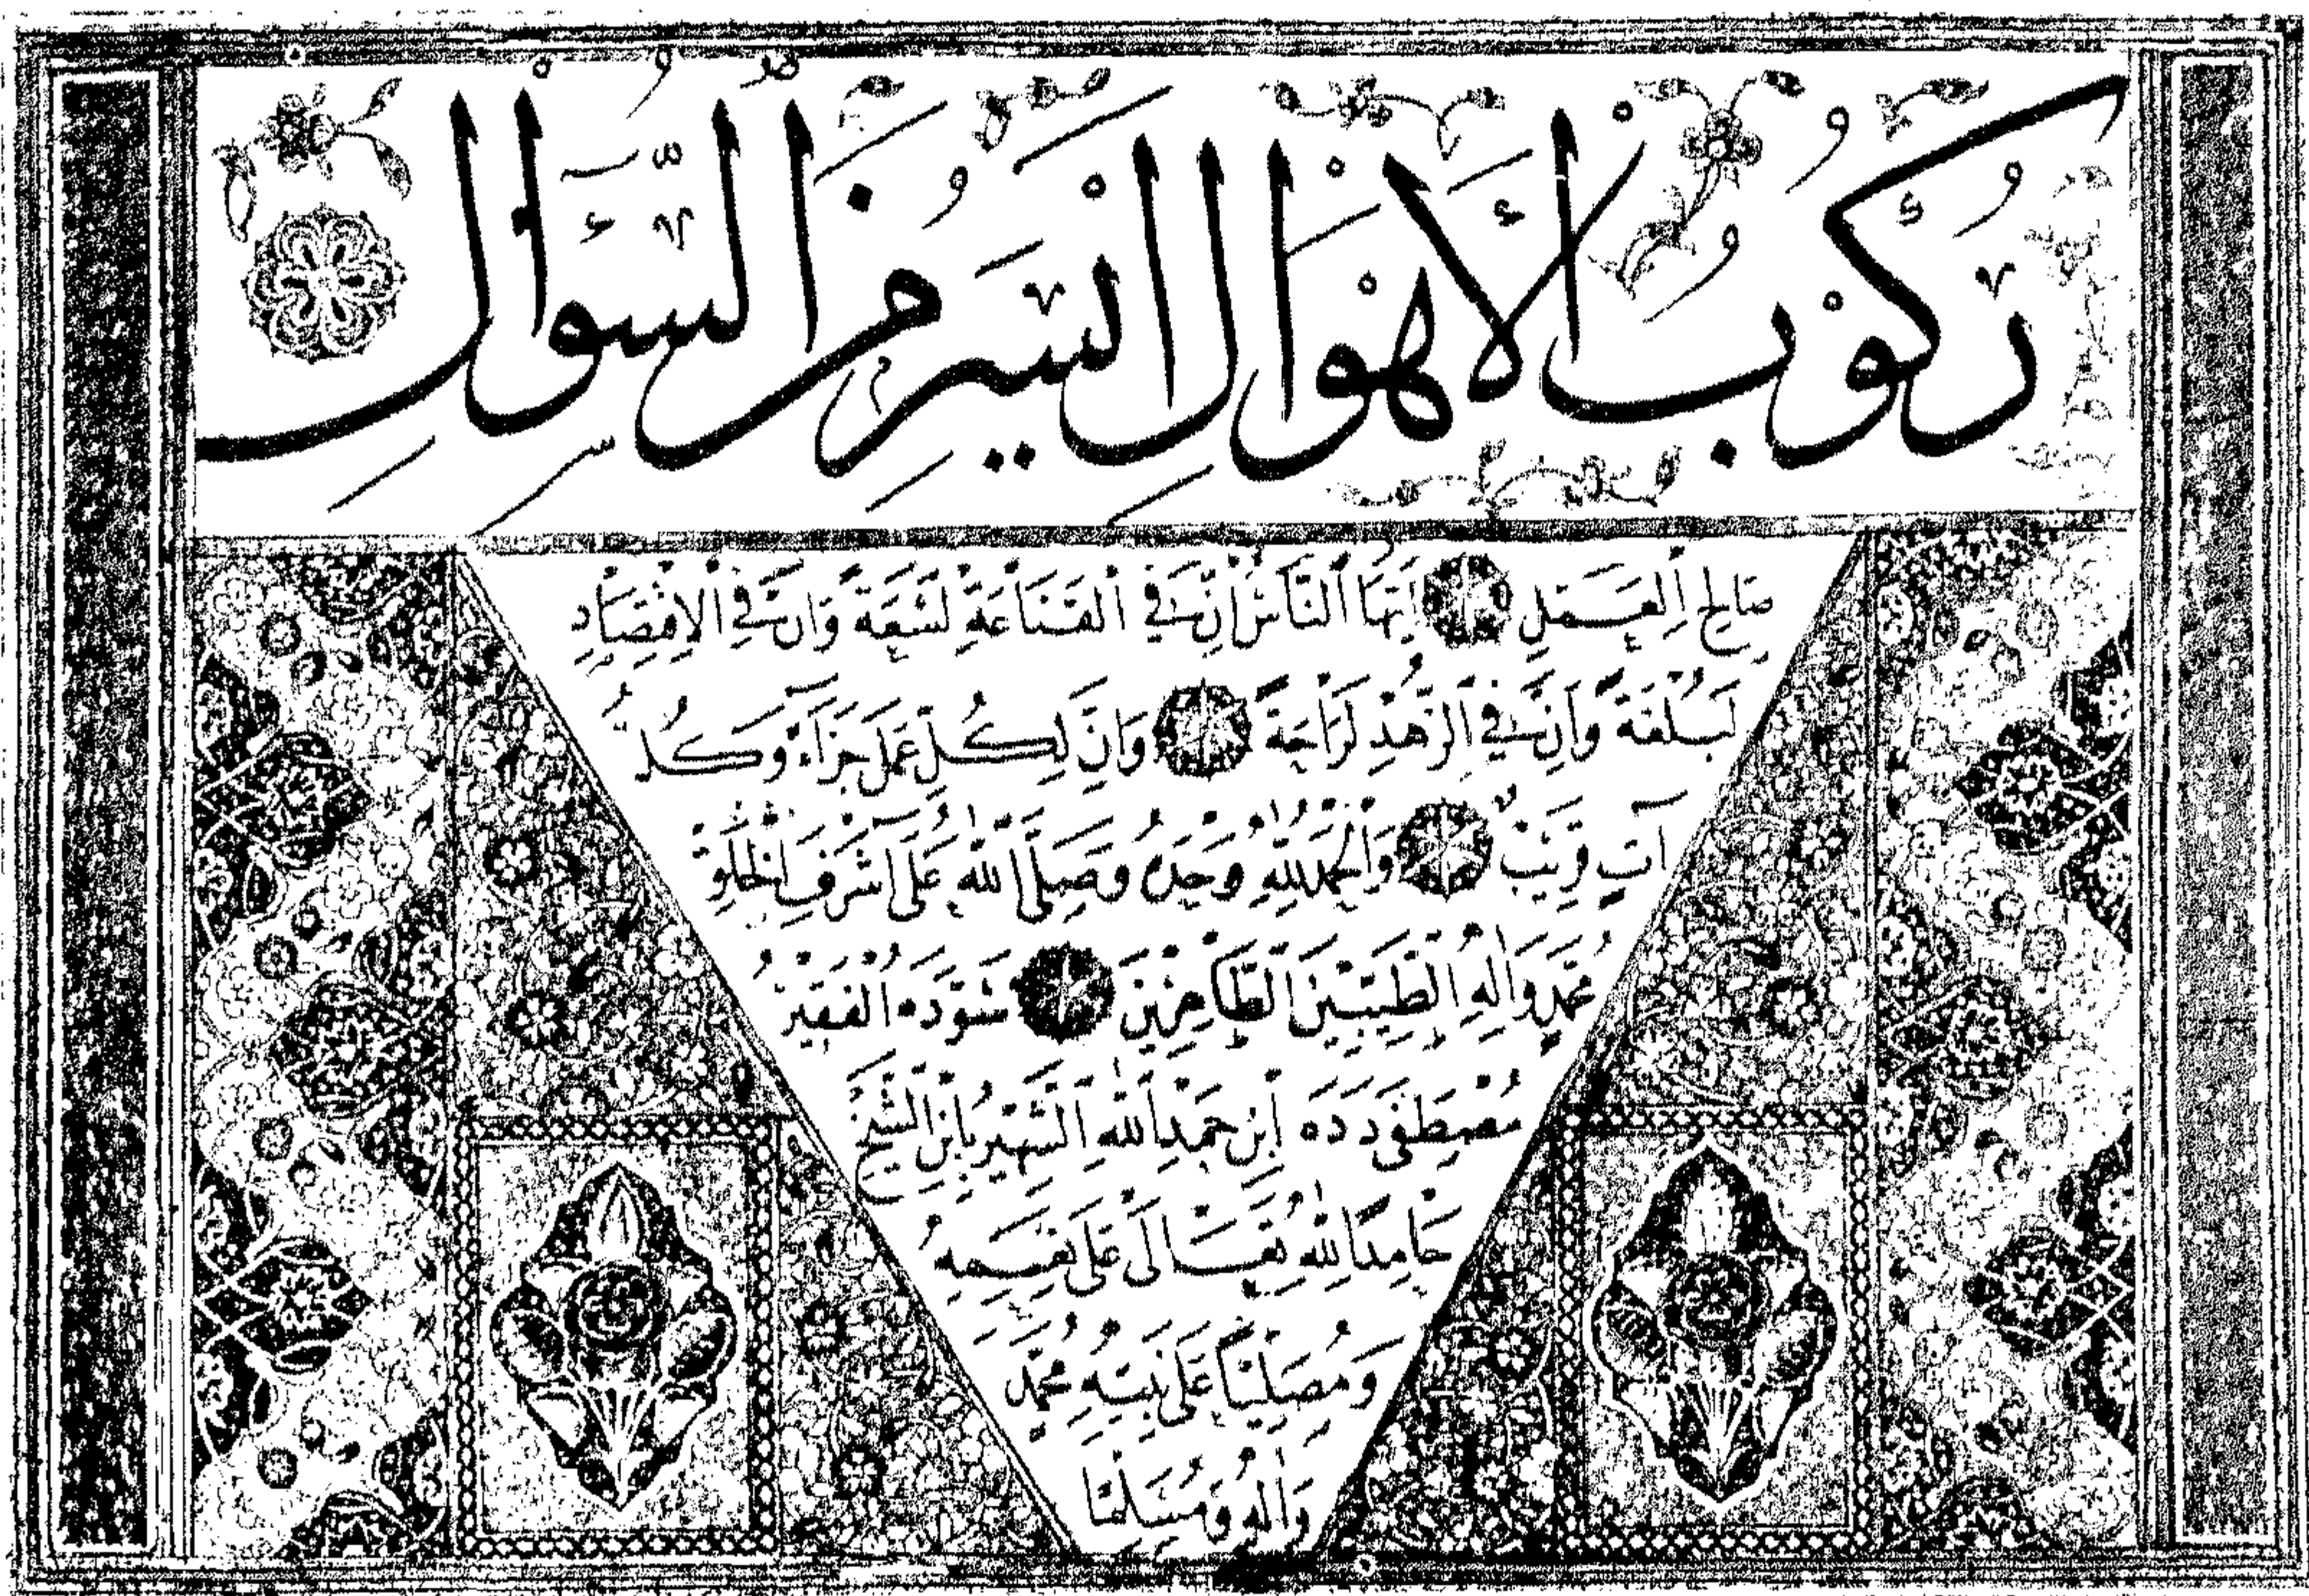 ركوب الأهوال أيسر من السؤال
صالح العمل أيها الناس إن في القناعة لسعة وإن في الاقتصاد
لبلغة وإن في الزهد لراحة وإن لكل عمل جزاء وكل
آت قريب والحمد لله وحده وصلى الله على أشرف الخلق
محمد وآله الطيبين الطاهرين سوده الفقير
مصطفى دده ابن حمد الله الشهير بابن الشيخ
حامدا لله تعالى على نعمه
ومصليا على نبيه محمد
وآله ومسلما